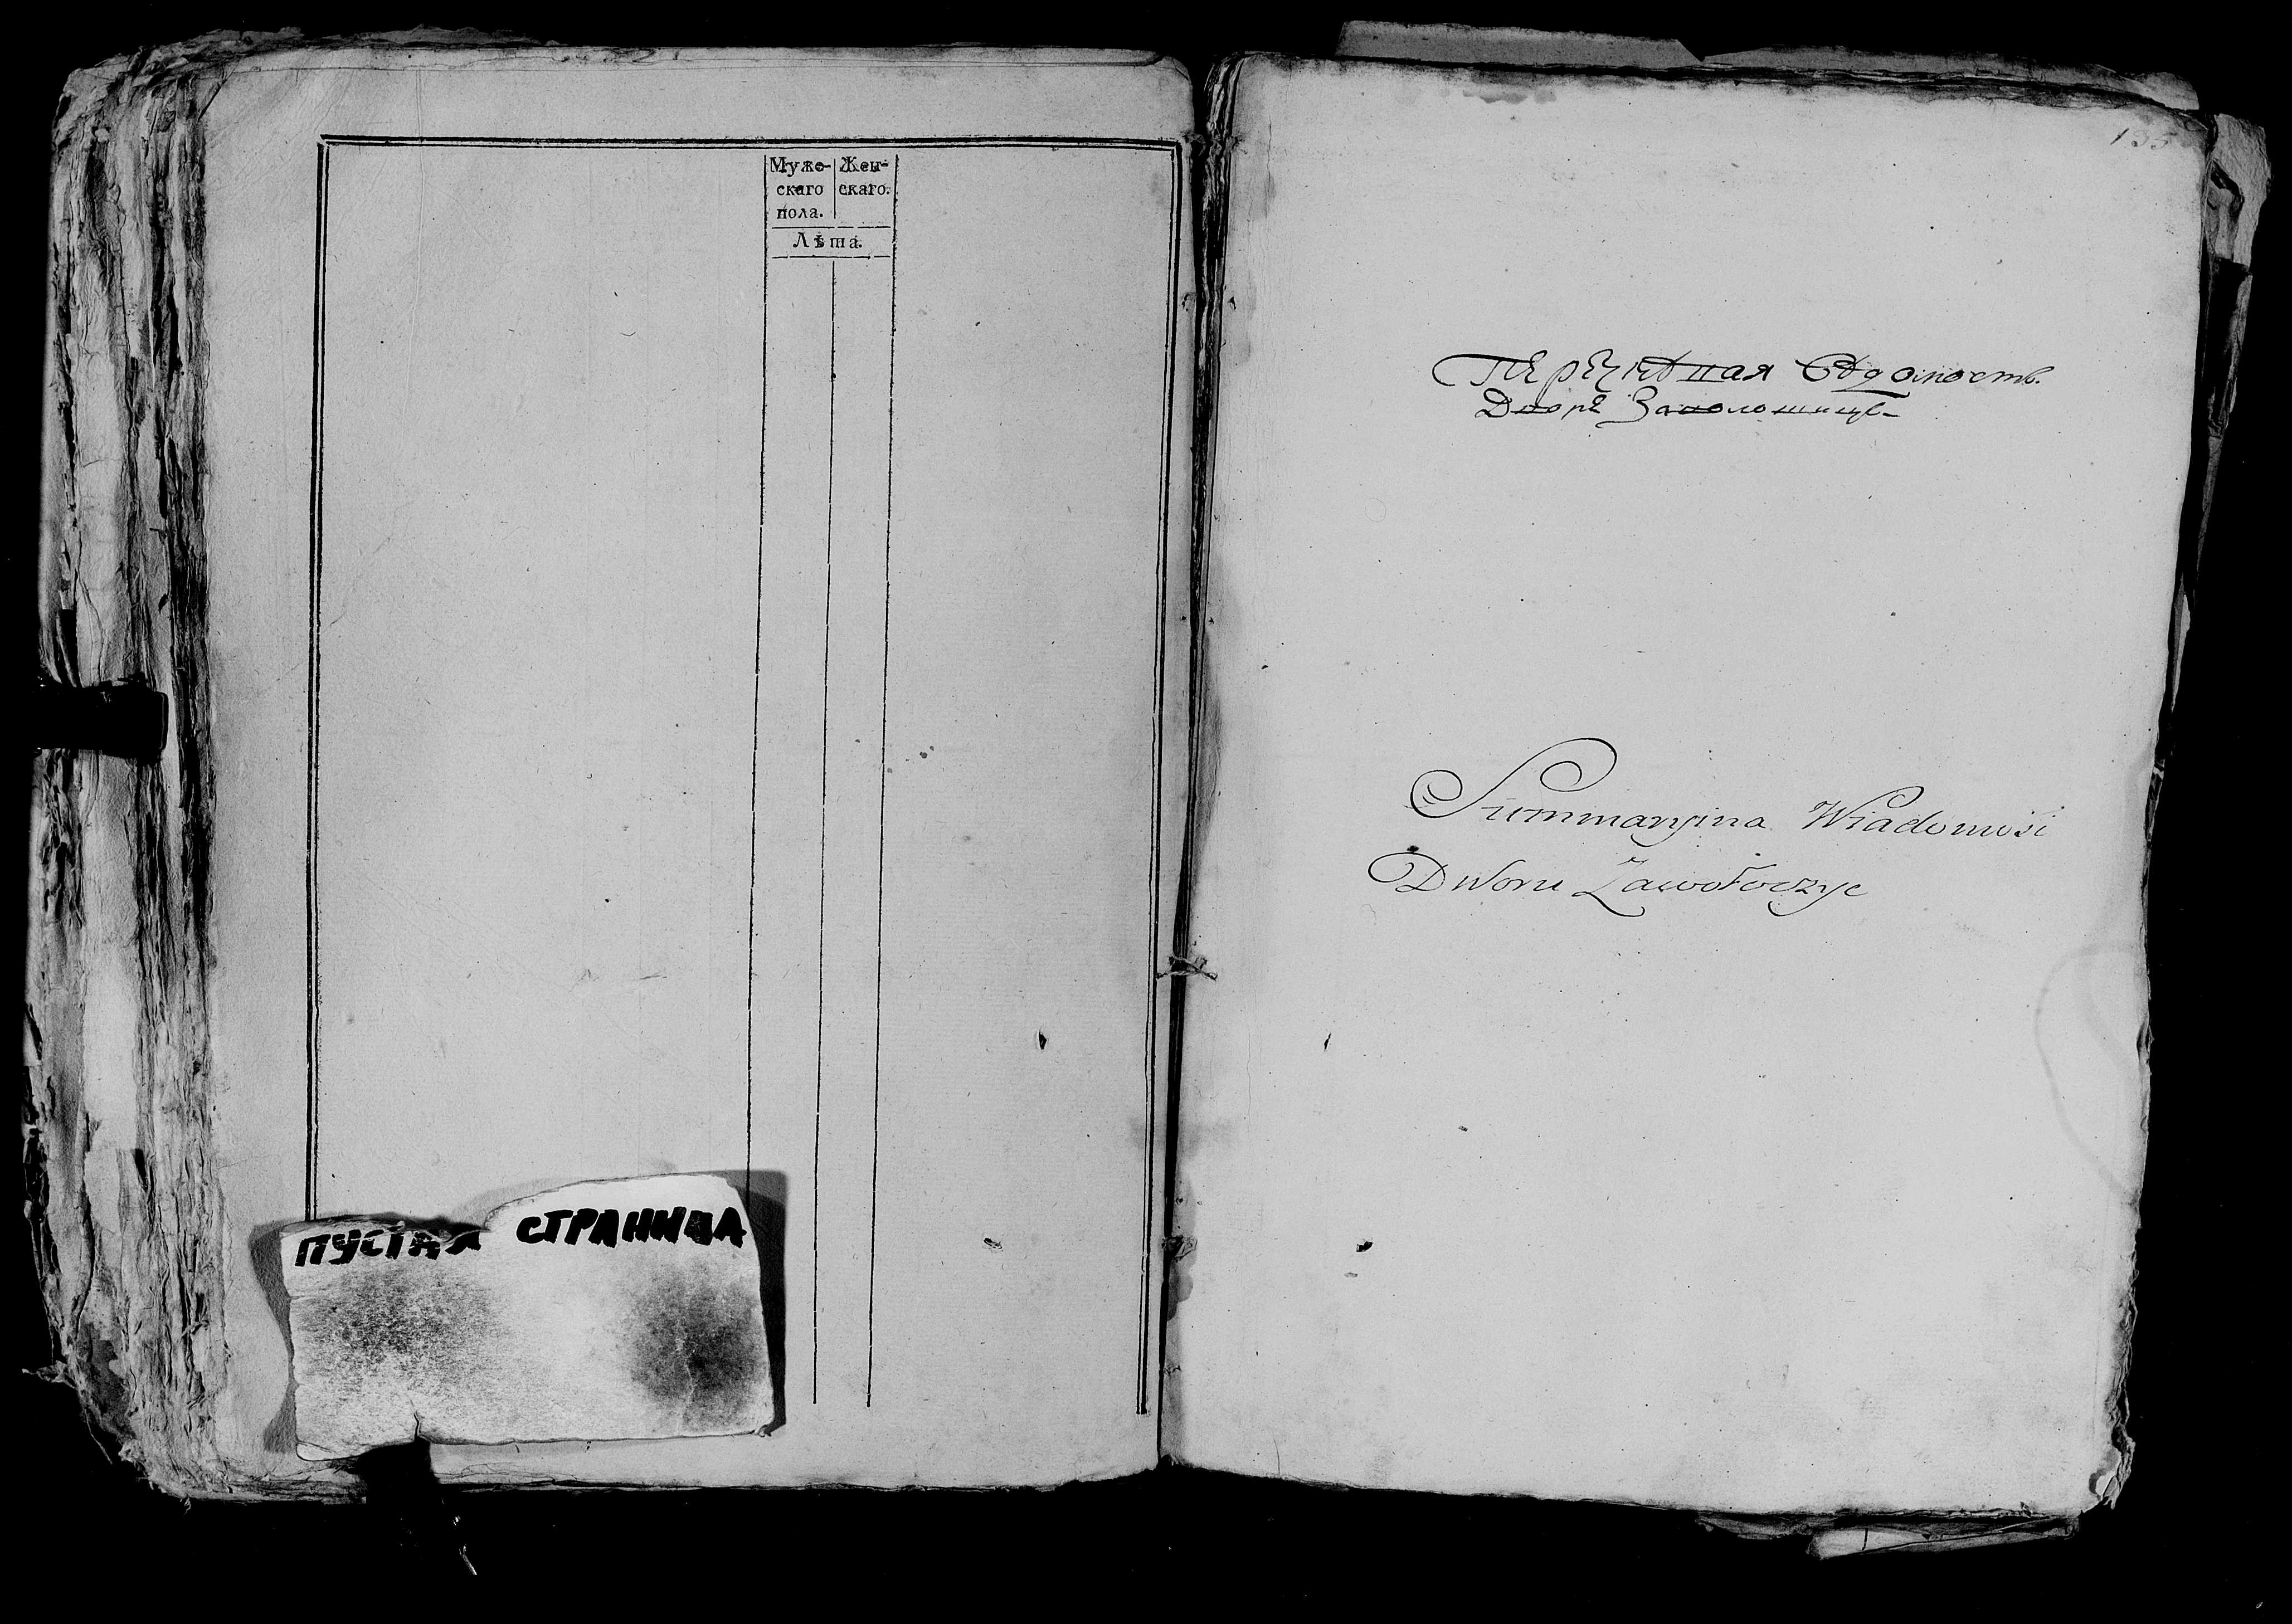 Муже-
скаго
пола.
Жен-
скаго.
Лѣта.
ПУСТАЯ СТРАНИЦА
135
Перечневая Вѣдомость.
Двора
Summaryina Wiadomość
Dworu Zawołoczyc